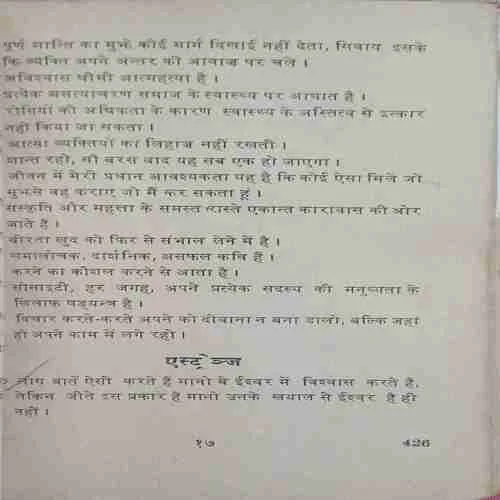 पूर्ण शान्ति का मुझे कोई मार्ग दिखाई नहीं देता, सिवाय इसके
कि व्यक्ति अपने अन्तर की आवाज़ पर चले ।
अविश्वास धीमी आत्महत्या है ।
प्रत्येक असत्याचरण समाज के स्वास्थ्य पर आघात है ।
रोगियों की अधिकता के कारण स्वास्थ्य के अस्तित्व से इन्कार
नहीं किया जा सकता ।
आत्मा व्यक्तियों का लिहाज़ नहीं रखती ।
शान्त रहो, सौ बरस बाद यह सब एक हो जाएगा ।
जीवन में मेरी प्रधान आवश्यकता यह है कि कोई ऐसा मिले जो
मुझसे वह कराए जो मैं कर सकता हूं ।
संस्कृति और महत्ता के समस्त रास्ते एकान्त कारावास की ओर
जाते हैं ।
वीरता खुद को फिर से संभाल लेने में है ।
समालोचक, दार्शनिक, असफल कवि हैं ।
करने का कौशल करने से आता है ।
सोसाइटी, हर जगह, अपने प्रत्येक सदस्य की मनुष्यता के
खिलाफ षड्यन्त्र है ।
विचार करते-करते अपने को दीवाना न बना डालो, बल्कि जहां
हो अपने काम में लगे रहो ।
एस्ट्रेञ्ज
लोग बातें ऐसी करते हैं मानो वे ईश्वर में विश्वास करते हैं,
लेकिन जीते इस प्रकार हैं मानो उनके खयाल से ईश्वर है ही
नहीं ।
१७ 426